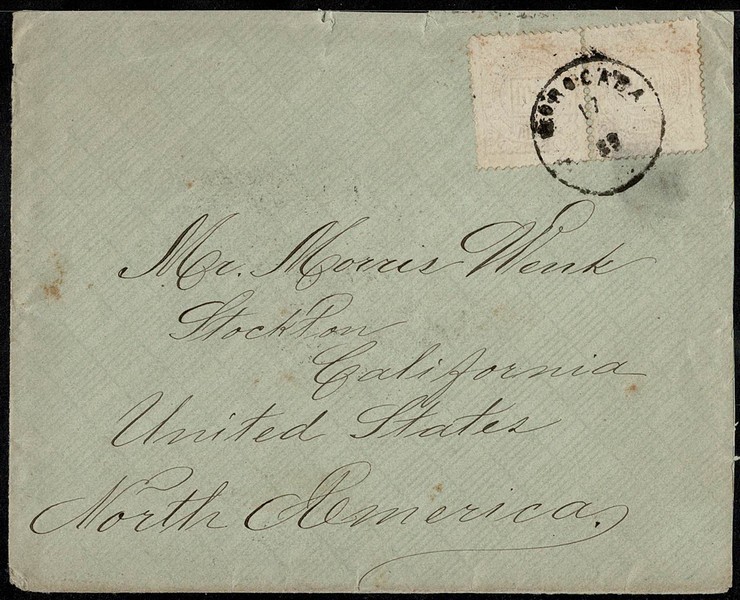 SOROCABA
Mr. Morris Wenk
Stockton
California
United States
North America.